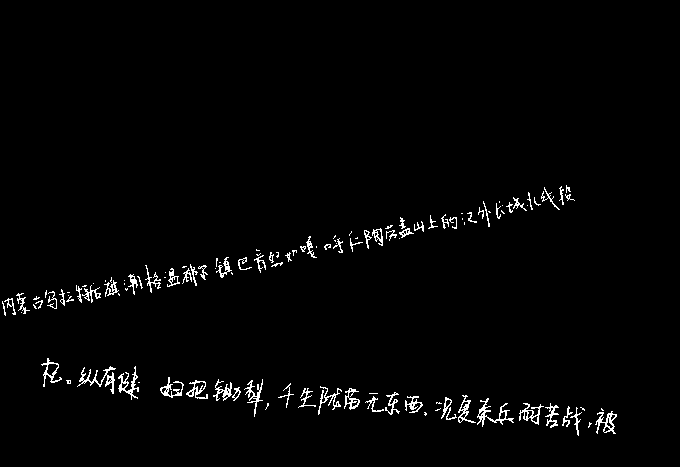 内蒙古乌拉特后旗潮格温都尔镇巴音努如嘎查呼仁陶勒盖山上的汉外长城北线段
杞。纵有健妇把锄犁,千生陇亩无东西。况复秦兵耐苦战,被